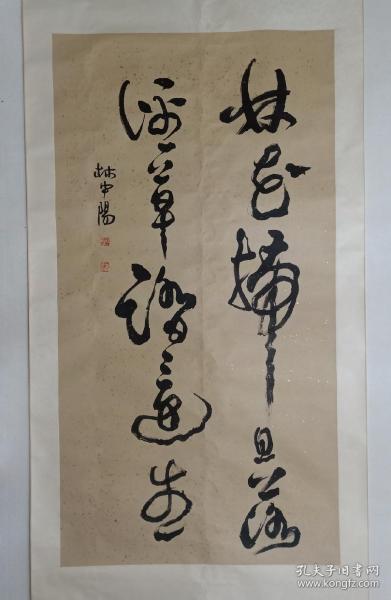 林花掃更落
徑草踏還生
林中陽
孔夫子旧书网